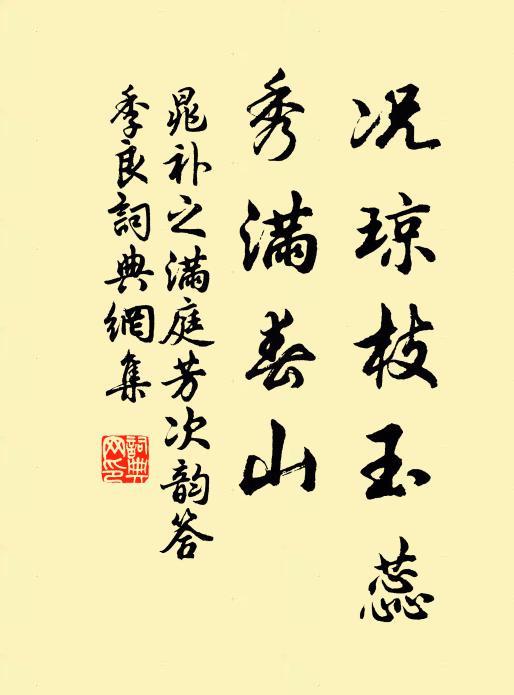 况琼枝玉蕊
秀满春山
晁补之满庭芳次韵答
季良詞典網集
詞典
网印